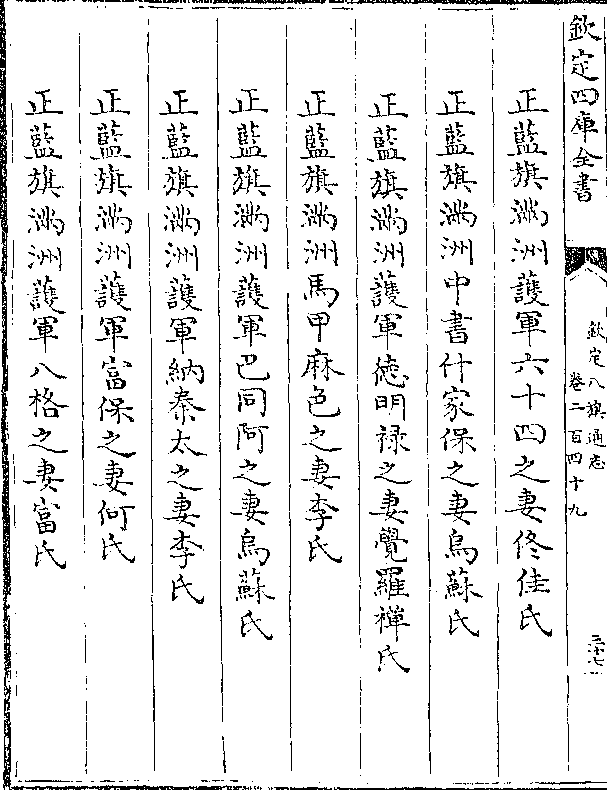 欽定四庫全書
欽定八旗通志
卷二百四十九
三十七
正藍旗滿洲護軍六十四之妻佟佳氏
正藍旗滿洲中書什家保之妻烏蘇氏
正藍旗滿洲護軍德明祿之妻覺羅禪氏
正藍旗滿洲馬甲麻色之妻李氏
正藍旗滿洲護軍巴同阿之妻烏蘇氏
正藍旗滿洲護軍納秦太之妻李氏
正藍旗滿洲護軍富保之妻何氏
正藍旗滿洲護軍八格之妻富氏